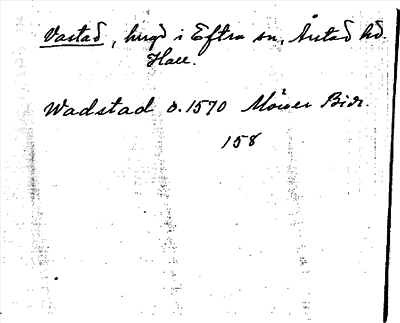 Vastad, hugd i Eftra sn, Årstad hd.
Hall.
Wadstad o. 1570 Bidr.
158